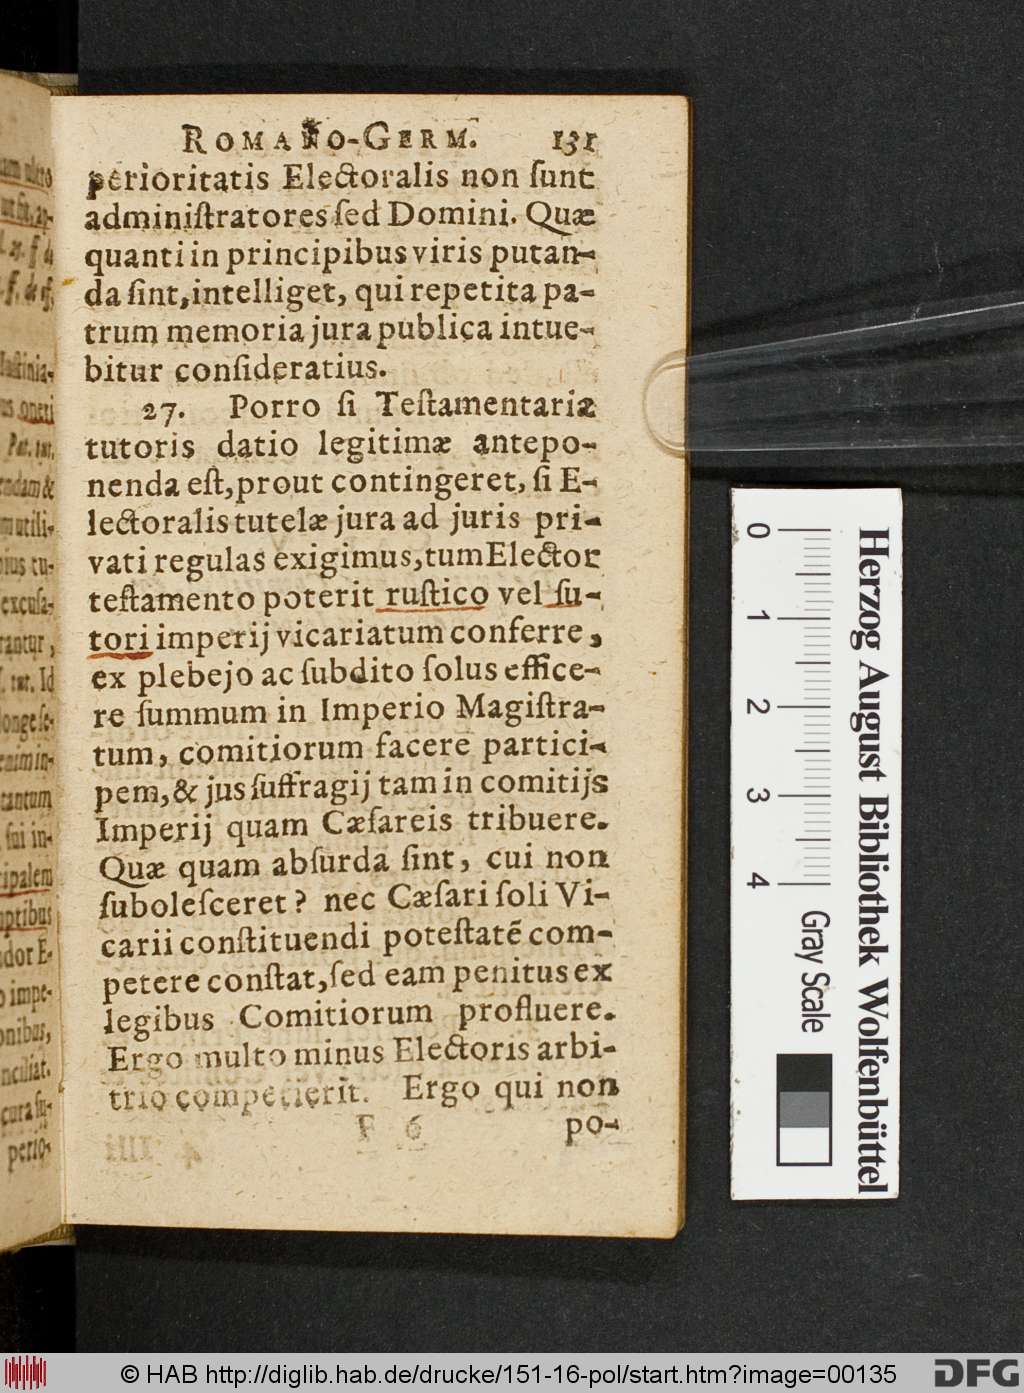 ROMANO-GERM. 131
perioritatis Electoralis non ſunt
adminiſtratores ſed Domini. Quæ
quanti in principibus viris putan-
da ſint, intelliget, qui repetita pa-
trum memoria jura publica intue-
bitur conſideratius.
27. Porro ſi Teſtamentaria
tutoris datio legitimæ antepo-
nenda eſt, prout contingeret, ſi E-
lectoralis tutelæ jura ad juris pri-
vati regulas exigimus, tum Elector
teſtamento poterit ruſtico vel ſu-
tori imperij vicariatum conferre,
ex plebejo ac ſubdito ſolus effice-
re ſummum in Imperio Magiſtra-
tum, comitiorum facere partici-
pem, & jus ſuffragij tam in comitijs
Imperij quam Cæſareis tribuere.
Quæ quam abſurda ſint, cui non
ſuboleſceret? nec Cæſari ſoli Vi-
carii conſtituendi poteſtatē com-
petere conſtat, ſed eam penitus ex
legibus Comitiorum profluere.
Ergo multo minus Electoris arbi-
trio competierit. Ergo qui non
F 6 po-
Herzog August Bibliothek Wolfenbüttel
0 1 2 3 4 Gray Scale
© HAB http://diglib.hab.de/drucke/151-16-pol/start.htm?image=00135
DFG